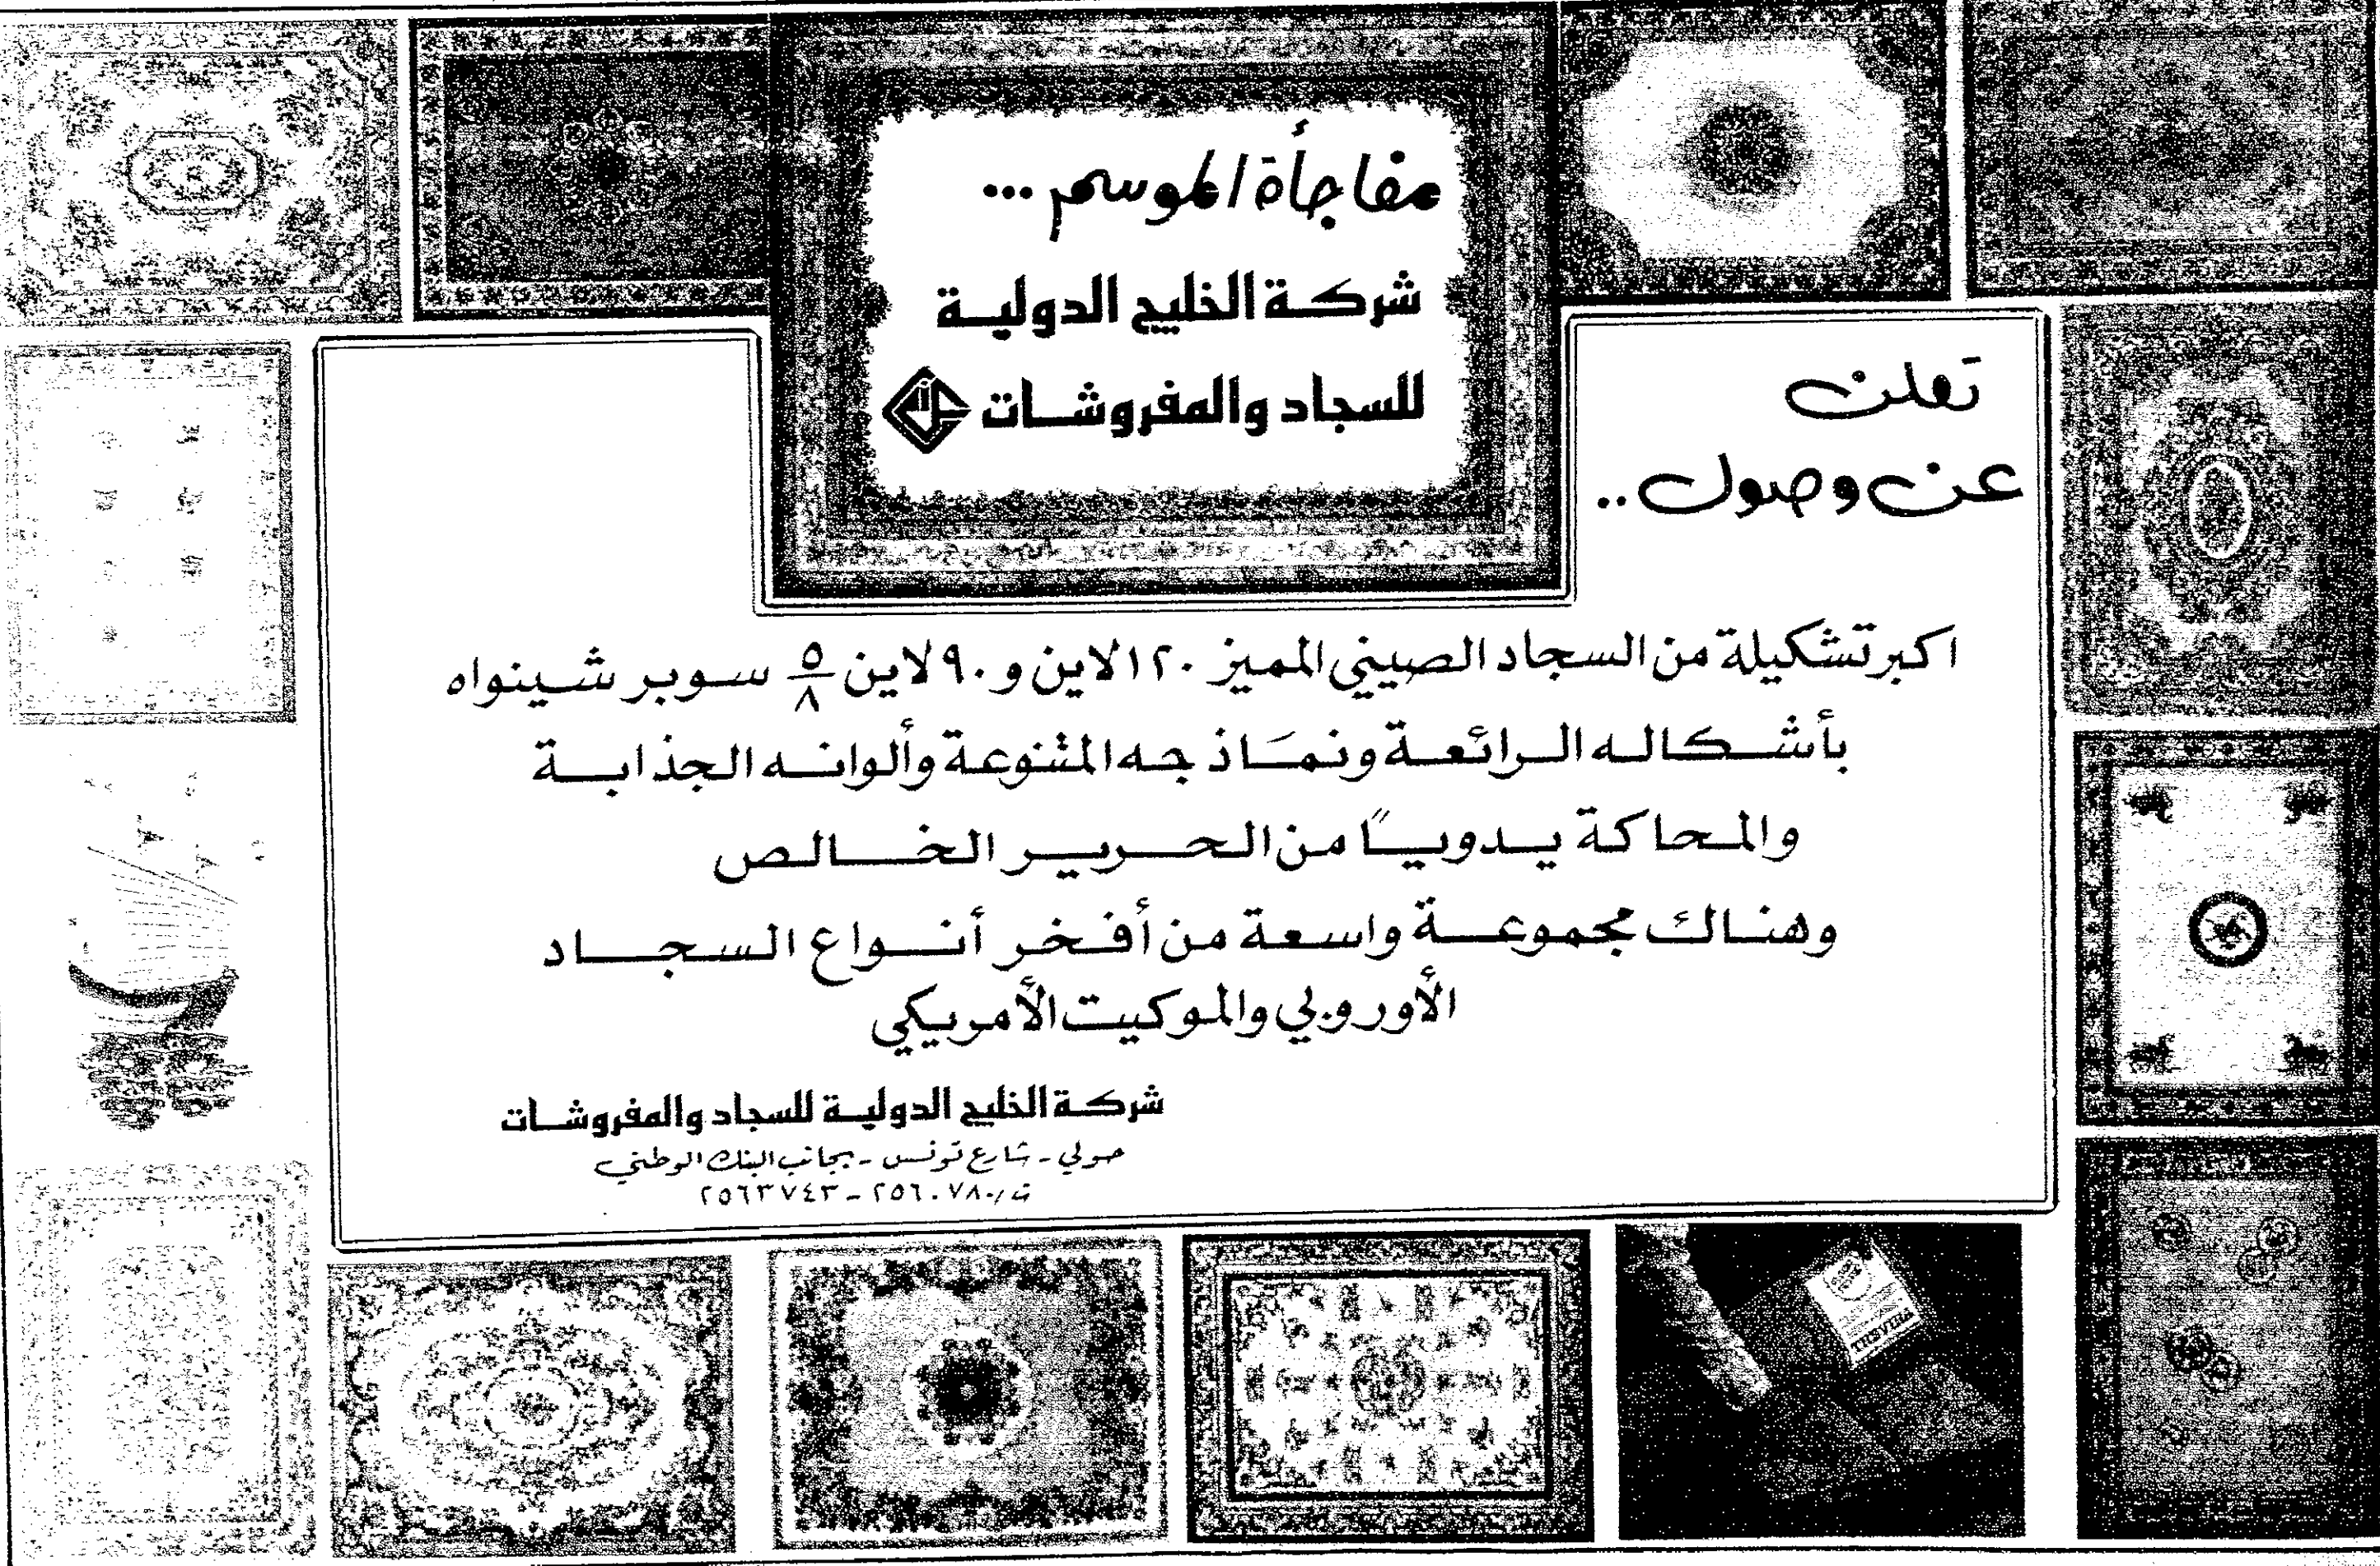 مفاجأة الموسم ...
شركة الخليج الدولية
للسجاد والمفروشات
تعلن
عن وصول ..
اكبر تشكيلة من السجاد الصيني المميز ١٢٠ لاين و ٩٠ لاين ٥/٨ سوبر شينواه
بأشكاله الرائعة ونماذجه المتنوعة وألوانه الجذابة
والمحاكة يدوياً من الحرير الخالص
وهناك مجموعة واسعة من أفخر أنواع السجاد
الأوروبي والموكيت الأمريكي
شركة الخليج الدولية للسجاد والمفروشات
حولي - شارع تونس - بجانب البنك الوطني
ت/ ٢٥٦٠٧٨٠ - ٢٥٦٣٧٤٣